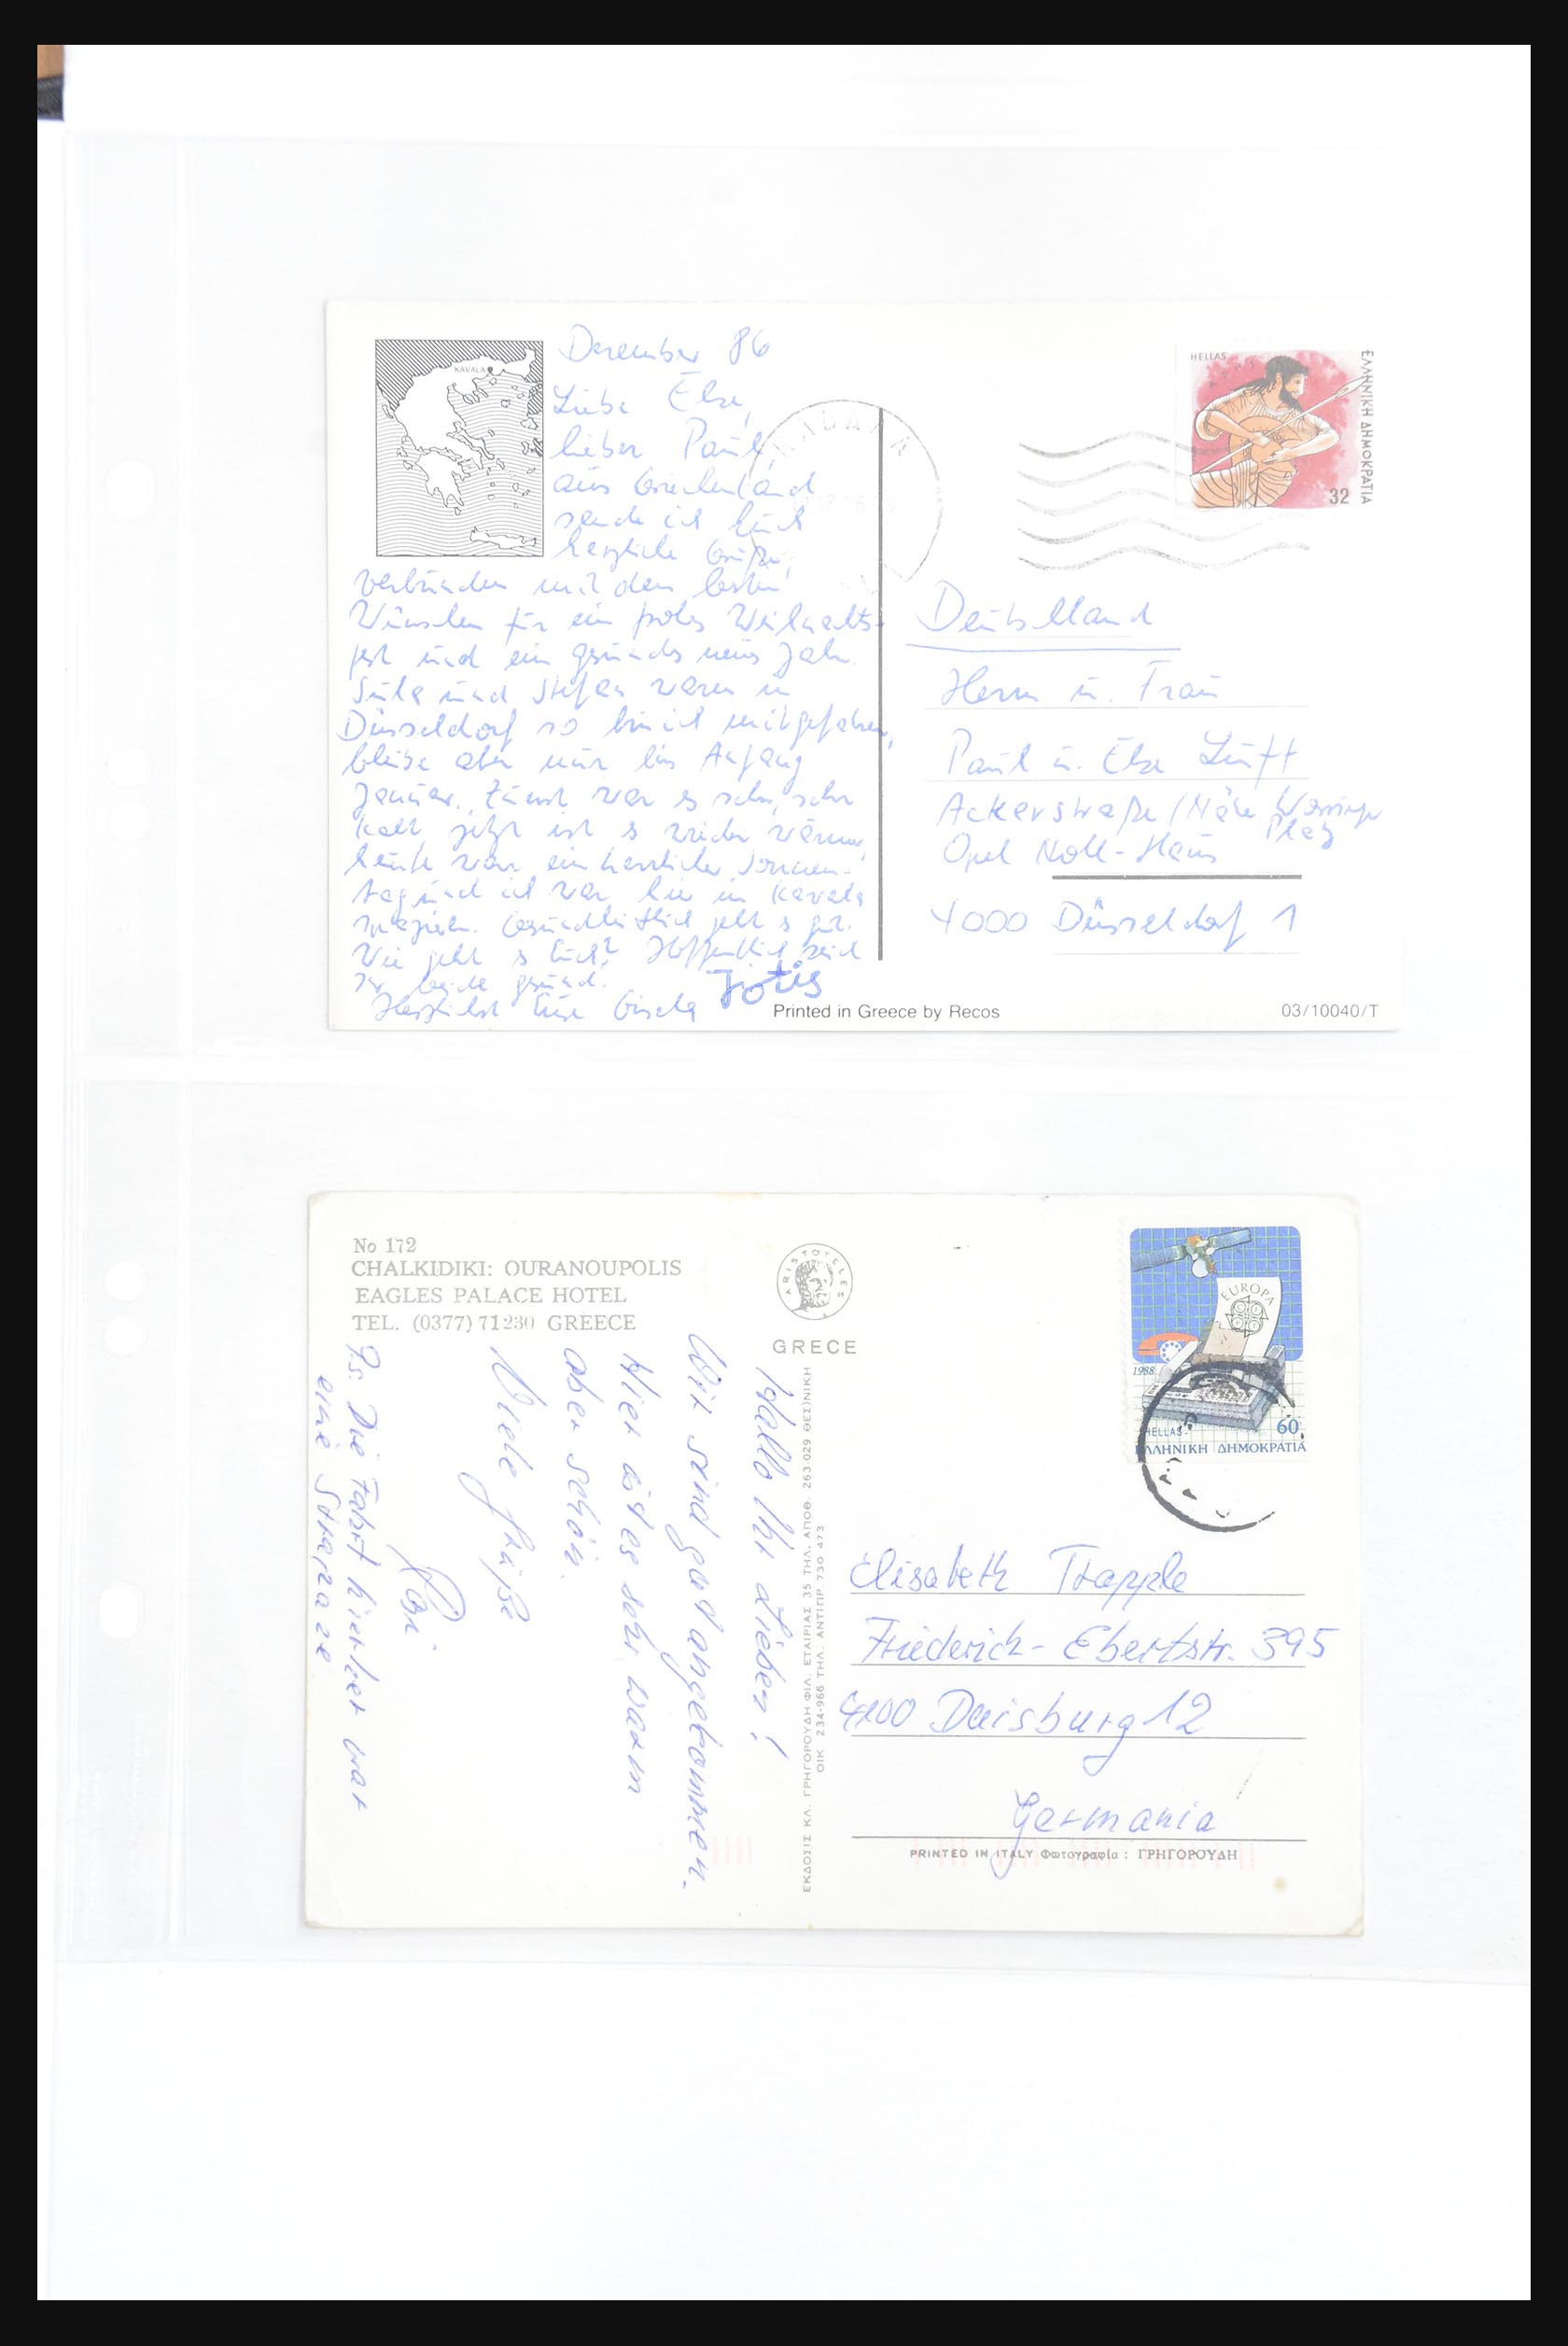 KAVALA
Dezember 86
Liebe Else,
lieber Paul,
aus Griechenland
sende ich Euch
herzliche Grüße,
verbunden mit den besten
Wünschen für ein frohes Weihnachts-
fest und ein gesundes neues Jahr.
und Stefan waren in
Düsseldorf so bin ich mitgefahren,
bleibe aber nur bis Anfang
Januar. Zuerst war es sehr, sehr
kalt, jetzt ist es wieder wärmer,
heute war ein herrlicher Sonnen-
tag und ich war hier in Kavala
spazieren. Gesundheitlich geht es gut.
Wie geht es Euch? Hoffentlich seid
Ihr beide gesund.
Herzlichst Eure Gisela
HELLAS
ΕΛΛΗΝΙΚΗ ΔΗΜΟΚΡΑΤΙΑ
32
Deutschland
Herrn u. Frau
Paul u. Else Luft
Ackerstraße / Nähe
Platz
Opel Noll-Haus
4000 Düsseldorf 1
Printed in Greece by Recos
03/10040/T
No 172
CHALKIDIKI: OURANOUPOLIS
EAGLES PALACE HOTEL
TEL. (0377) 71230 GREECE
ARISTOTELES
GRECE
Hallo Ihr Lieben!
Wir sind gut angekommen.
Hier ist es sehr warm
aber schön.
Viele Grüße
Ps. Die Fahrt hierher war
eine Strapaze
ΕΚΔΟΣΙΣ ΚΛ. ΓΡΗΓΟΡΟΥΔΗ ΦΙΛ. ΕΤΑΙΡΙΑΣ 35 ΤΗΛ. ΑΠΟΘ. 263.029 ΘΕΣ)ΝΙΚΗ
ΟΙΚ 234-966 ΤΗΛ. ΑΝΤΙΠΡ. 730 473
EUROPA
1988
HELLAS
60
ΕΛΛΗΝΙΚΗ ΔΗΜΟΚΡΑΤΙΑ
Elisabeth Trapple
Friederich-Ebertstr. 395
4100 Duisburg 12
Germania
PRINTED IN ITALY Φωτογραφία : ΓΡΗΓΟΡΟΥΔΗ